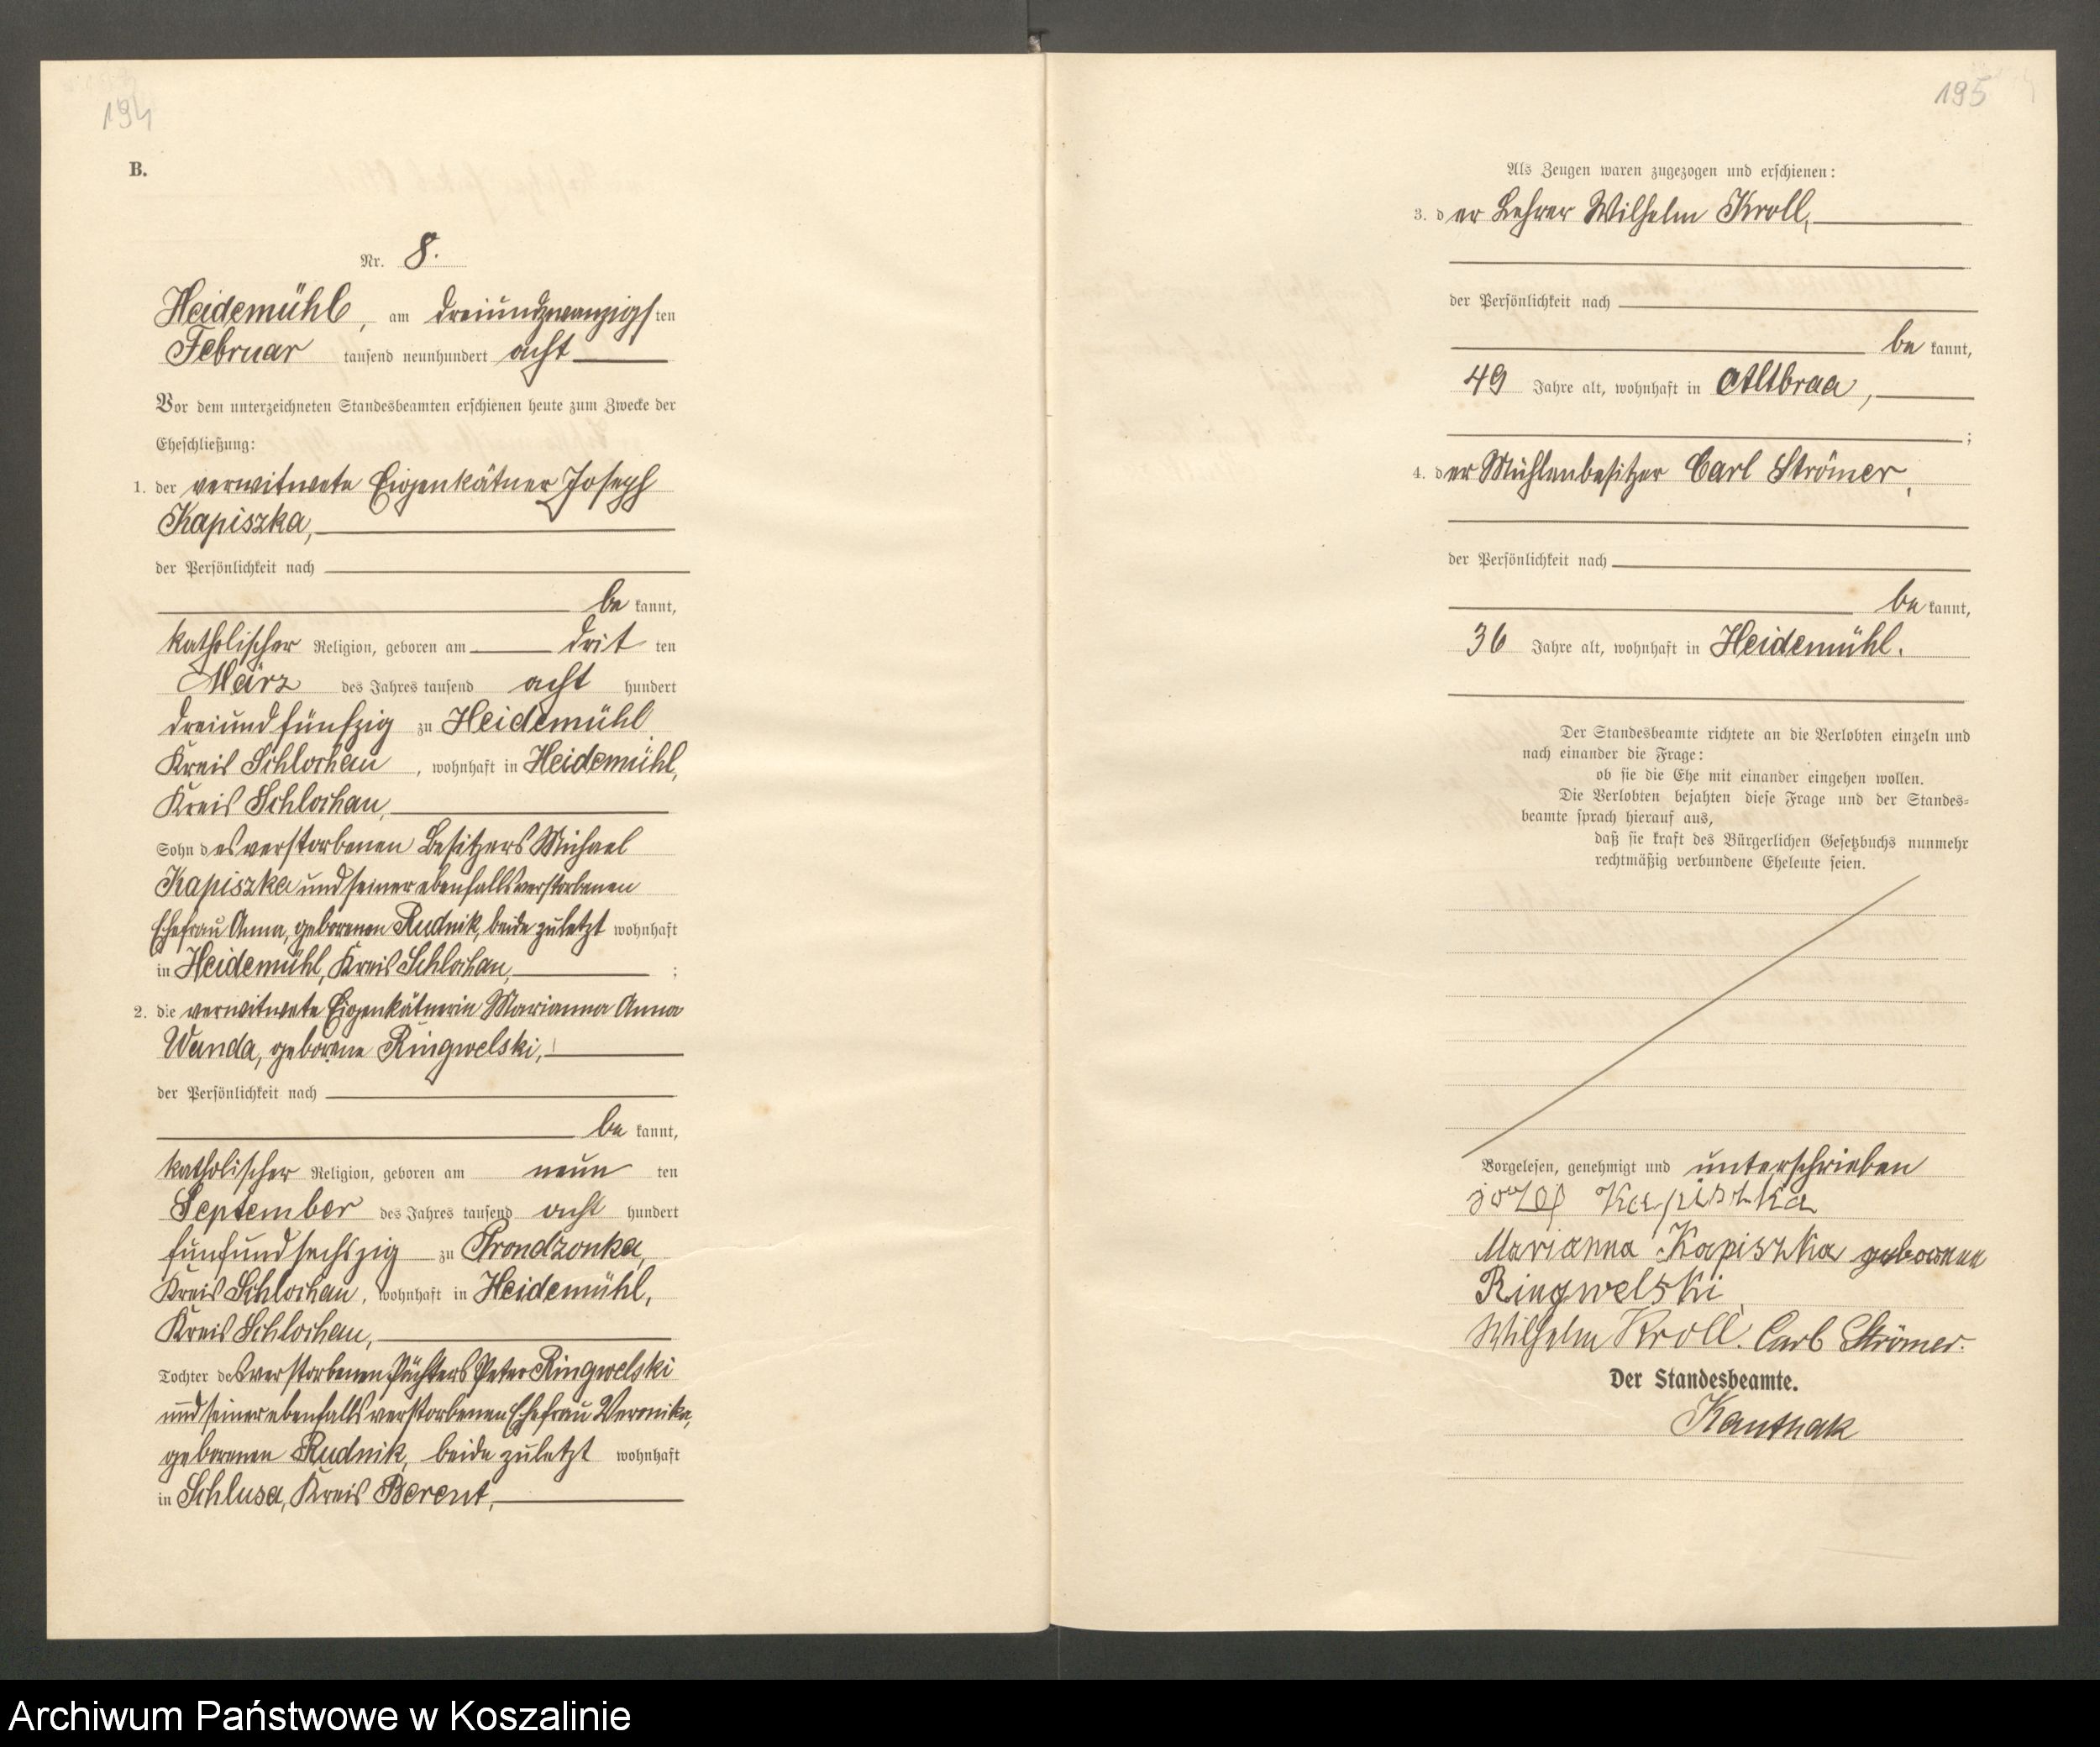 194
B.
Nr. 8.
Heidemühl, am dreiundzwanzigsten
Februar tausend neunhundert acht
Vor dem unterzeichneten Standesbeamten erschienen heute zum Zwecke der
Eheschließung:
1. der verwitwete Eigenkätner Joseph
Kapiszka,
der Persönlichkeit nach
be kannt,
katholischer Religion, geboren am dritten
März des Jahres tausend acht hundert
dreiundfünfzig zu Heidemühl
Kreis Schlochau, wohnhaft in Heidemühl,
Kreis Schlochau,
Sohn des verstorbenen Besitzers Michael
Kapiszka und seiner ebenfalls verstorbenen
Ehefrau Anna, geborenen Rudnik, beide zuletzt wohnhaft
in Heidemühl, Kreis Schlochau, ;
2. die verwitwete Eigenkätnerin Marianna Anna
Wanda, geborene Ringwelski,
der Persönlichkeit nach
be kannt,
katholischer Religion, geboren am neun ten
September des Jahres tausend acht hundert
fünfundsechszig zu Prondzonka,
Kreis Schlochau, wohnhaft in Heidemühl,
Kreis Schlochau,
Tochter des verstorbenen Pächters Peter Ringwelski
und seiner ebenfalls verstorbenen Ehefrau Veronika,
geborenen Rudnik, beide zuletzt wohnhaft
in Schlusa, Kreis Berent,
195
Als Zeugen waren zugezogen und erschienen:
3. der Lehrer Wilhelm Kroll,
der Persönlichkeit nach
be kannt,
49 Jahre alt, wohnhaft in Altbraa,
;
4. der Mühlenbesitzer Carl Strömer,
der Persönlichkeit nach
be kannt,
36 Jahre alt, wohnhaft in Heidemühl.
Der Standesbeamte richtete an die Verlobten einzeln und
nach einander die Frage:
ob sie die Ehe mit einander eingehen wollen.
Die Verlobten bejahten diese Frage und der Standes-
beamte sprach hierauf aus,
daß sie kraft des Bürgerlichen Gesetzbuchs nunmehr
rechtmäßig verbundene Eheleute seien.
Vorgelesen, genehmigt und unterschrieben
józef Kapiszka
Marianna Kapiszka geborenen
Ringwelski
Wilhelm Kroll. Carl Strömer.
Der Standesbeamte.
Kanthak
Archiwum Państwowe w Koszalinie